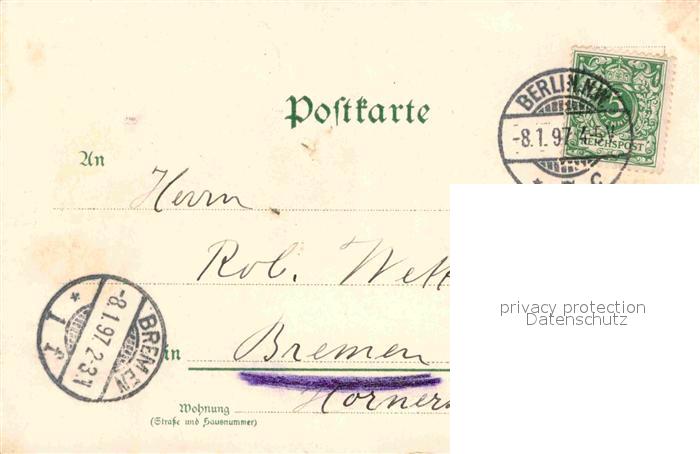 Postkarte
BERLIN.N.W.
-8.1.97.
* * C
5
REICHSPOST
An
Herrn
Rob. Wett
privacy protection
Datenschutz
BREMEN
-8.1.97.2-3N
* 1
in Bremen
Horners
Wohnung
(Straße und Hausnummer)